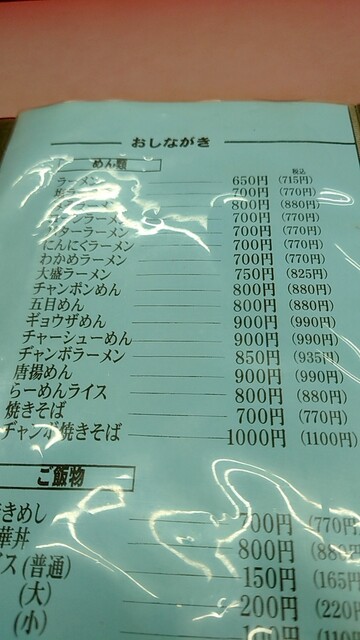 おしながき
めん類
税込
ラーメン 650円 (715円)
ラーメン 700円 (770円)
800円 (880円)
ラーメン 700円 (770円)
バターラーメン 700円 (770円)
にんにくラーメン 700円 (770円)
わかめラーメン 700円 (770円)
大盛ラーメン 750円 (825円)
チャンポンめん 800円 (880円)
五目めん 800円 (880円)
ギョウザめん 900円 (990円)
チャーシューめん 900円 (990円)
ヂャンボラーメン 850円 (935円)
唐揚めん 900円 (990円)
らーめんライス 800円 (880円)
焼きそば 700円 (770円)
ヂャンボ焼きそば 1000円 (1100円)
ご飯物
きめし 700円 (770円
華丼 800円 (880
イス(普通) 150円 (165円
(大) 200円 (220
(小)